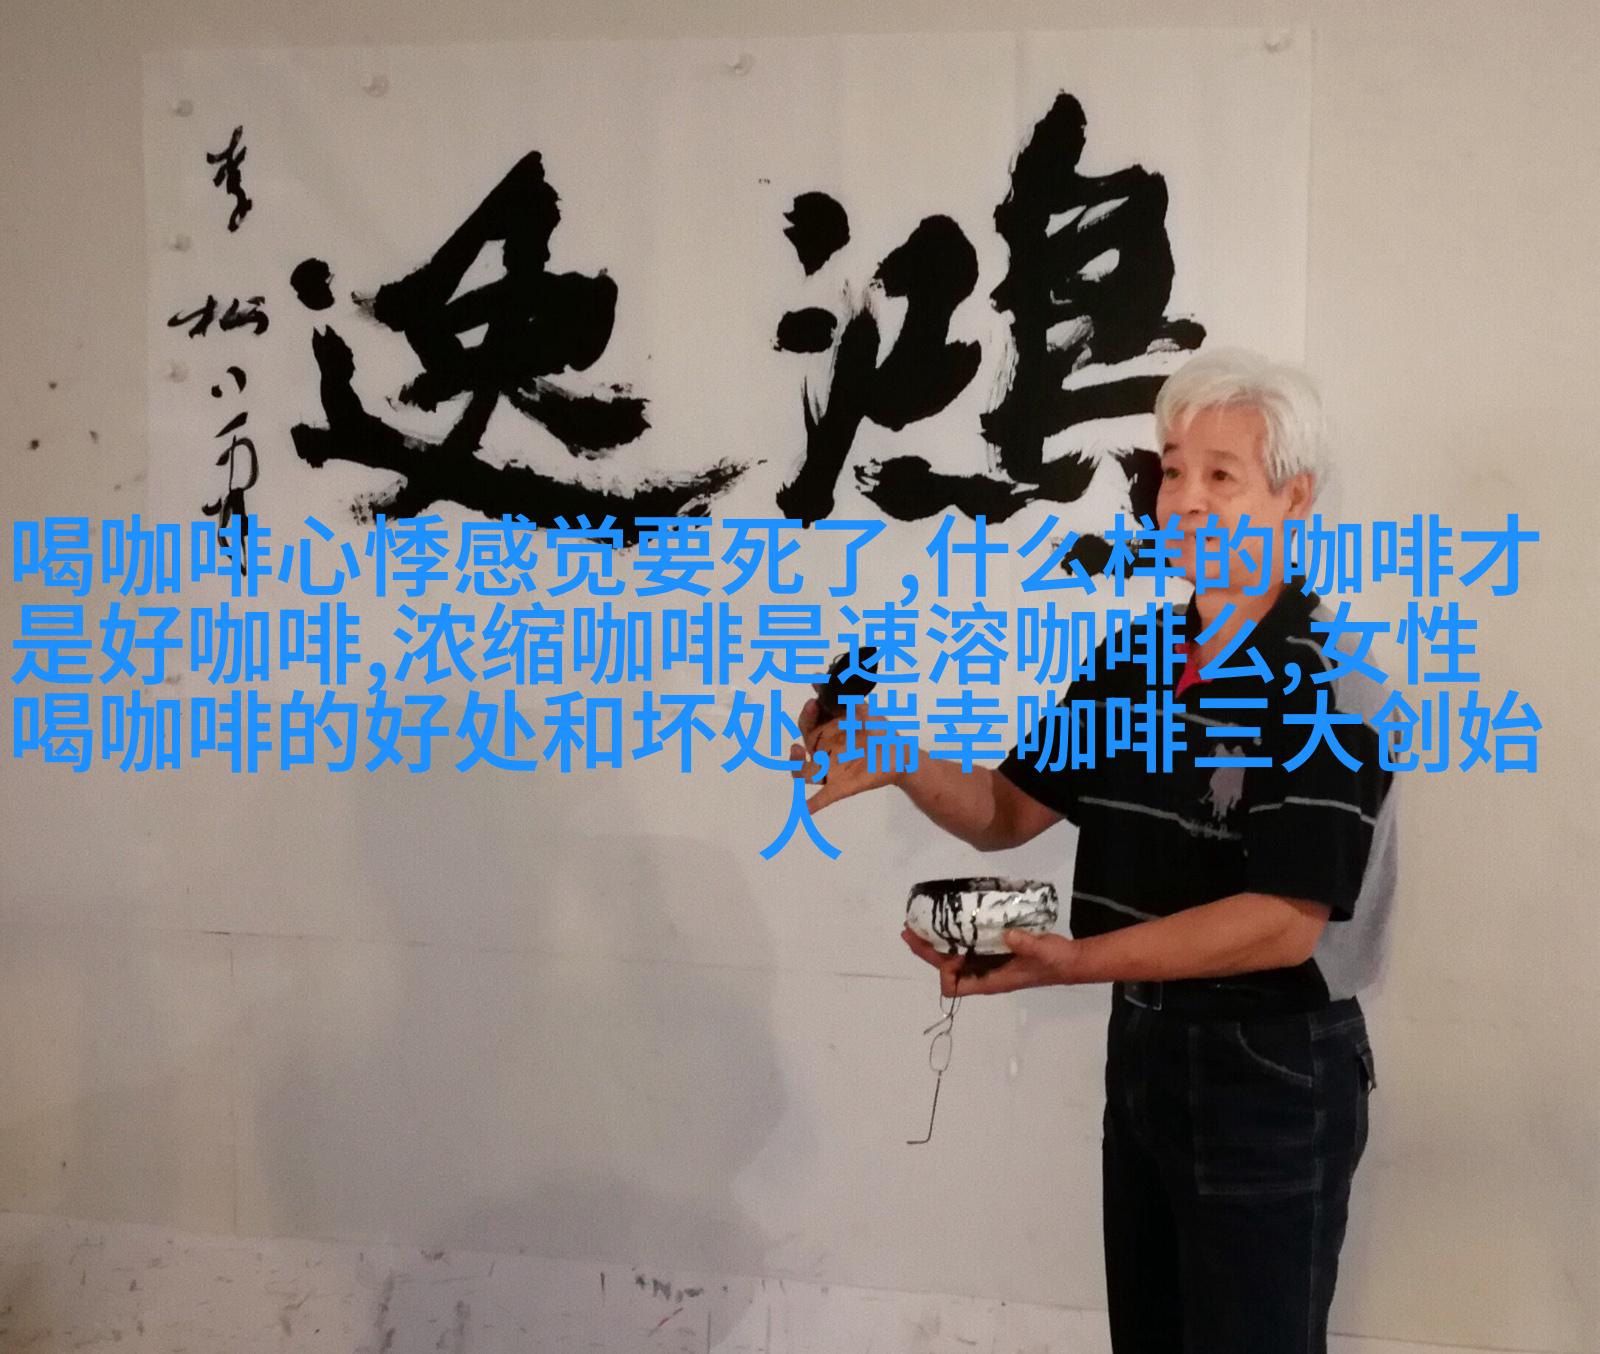 鸿逸
李松
喝咖啡心悸感觉要死了,什么样的咖啡才
是好咖啡,浓缩咖啡是速溶咖啡么,女性
喝咖啡的好处和坏处,瑞幸咖啡三大创始
人